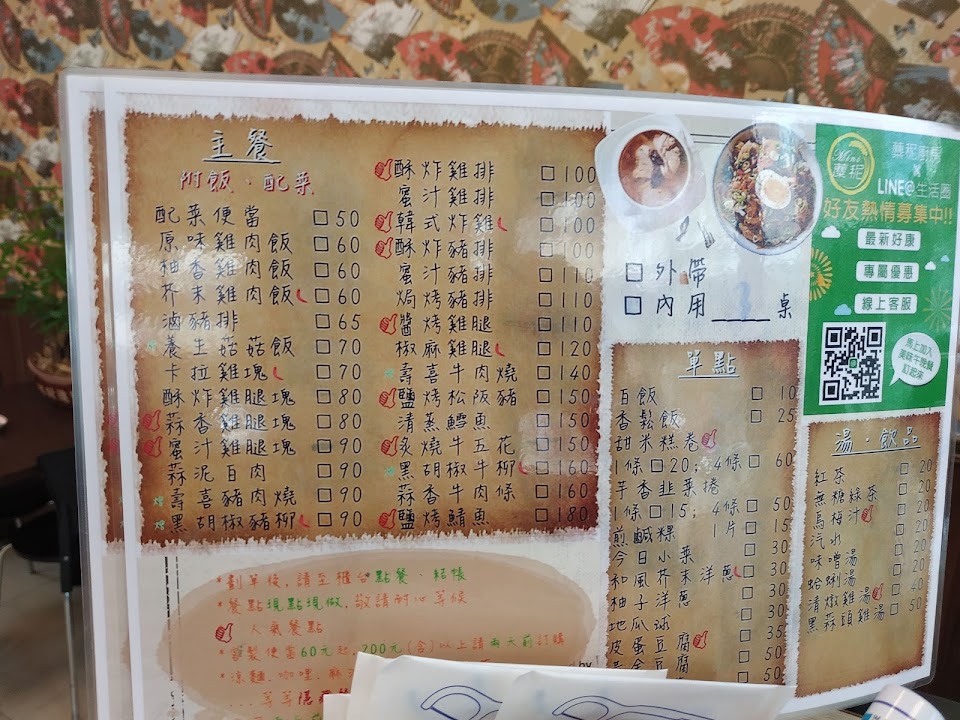 主餐
附飯．配菜
配菜便當 □50
原味雞肉飯 □60
柚香雞肉飯 □60
芥末雞肉飯 □60
滷豬排 □65
養生菇菇飯 □70
卡拉雞塊 □70
酥炸雞腿塊 □80
蒜香雞腿塊 □80
蜜汁雞腿塊 □90
蒜泥白肉 □90
壽喜豬肉燒 □90
黑胡椒豬柳 □90
酥炸雞排 □100
蜜汁雞排 □100
韓式炸雞 □100
酥炸豬排 □100
蜜汁豬排 □110
焗烤豬排 □110
醬烤雞腿 □110
椒麻雞腿 □120
壽喜牛肉燒 □140
鹽烤松阪豬 □150
清蒸鱈魚 □150
炙燒牛五花 □150
黑胡椒牛柳 □160
蒜香牛肉條 □160
鹽烤鯖魚 □180
*劃單後，請至櫃台點餐、結帳
*餐點現點現做，敬請耐心等候
人氣餐點
*製便當60元起，200元(含)以上請兩天前訂購
*涼麵、咖哩、麻
...等等隱
□外帶
□內用____桌
單點
百飯 □10
香鬆飯 □25
甜米糕卷
1條□20；4條□60
芋香韭菜捲
1條□15；4條□50
煎鹹粿 1片□15
今日小菜 □30
和風芥末洋蔥 □30
柚子洋蔥 □30
地瓜球 □35
皮蛋豆腐 □50
豆腐 □50
Mini
蔾秜
LINE@生活圈
好友熱情募集中!!
最新好康
專屬優惠
線上客服
馬上加入
美味午晚餐
訂起來
湯．飲品
紅茶 □20
無糖綠茶 □20
烏梅汁 □20
汽水 □20
味噌湯 □20
蛤蜊湯 □40
清燉雞湯 □40
黑蒜頭雞湯 □50